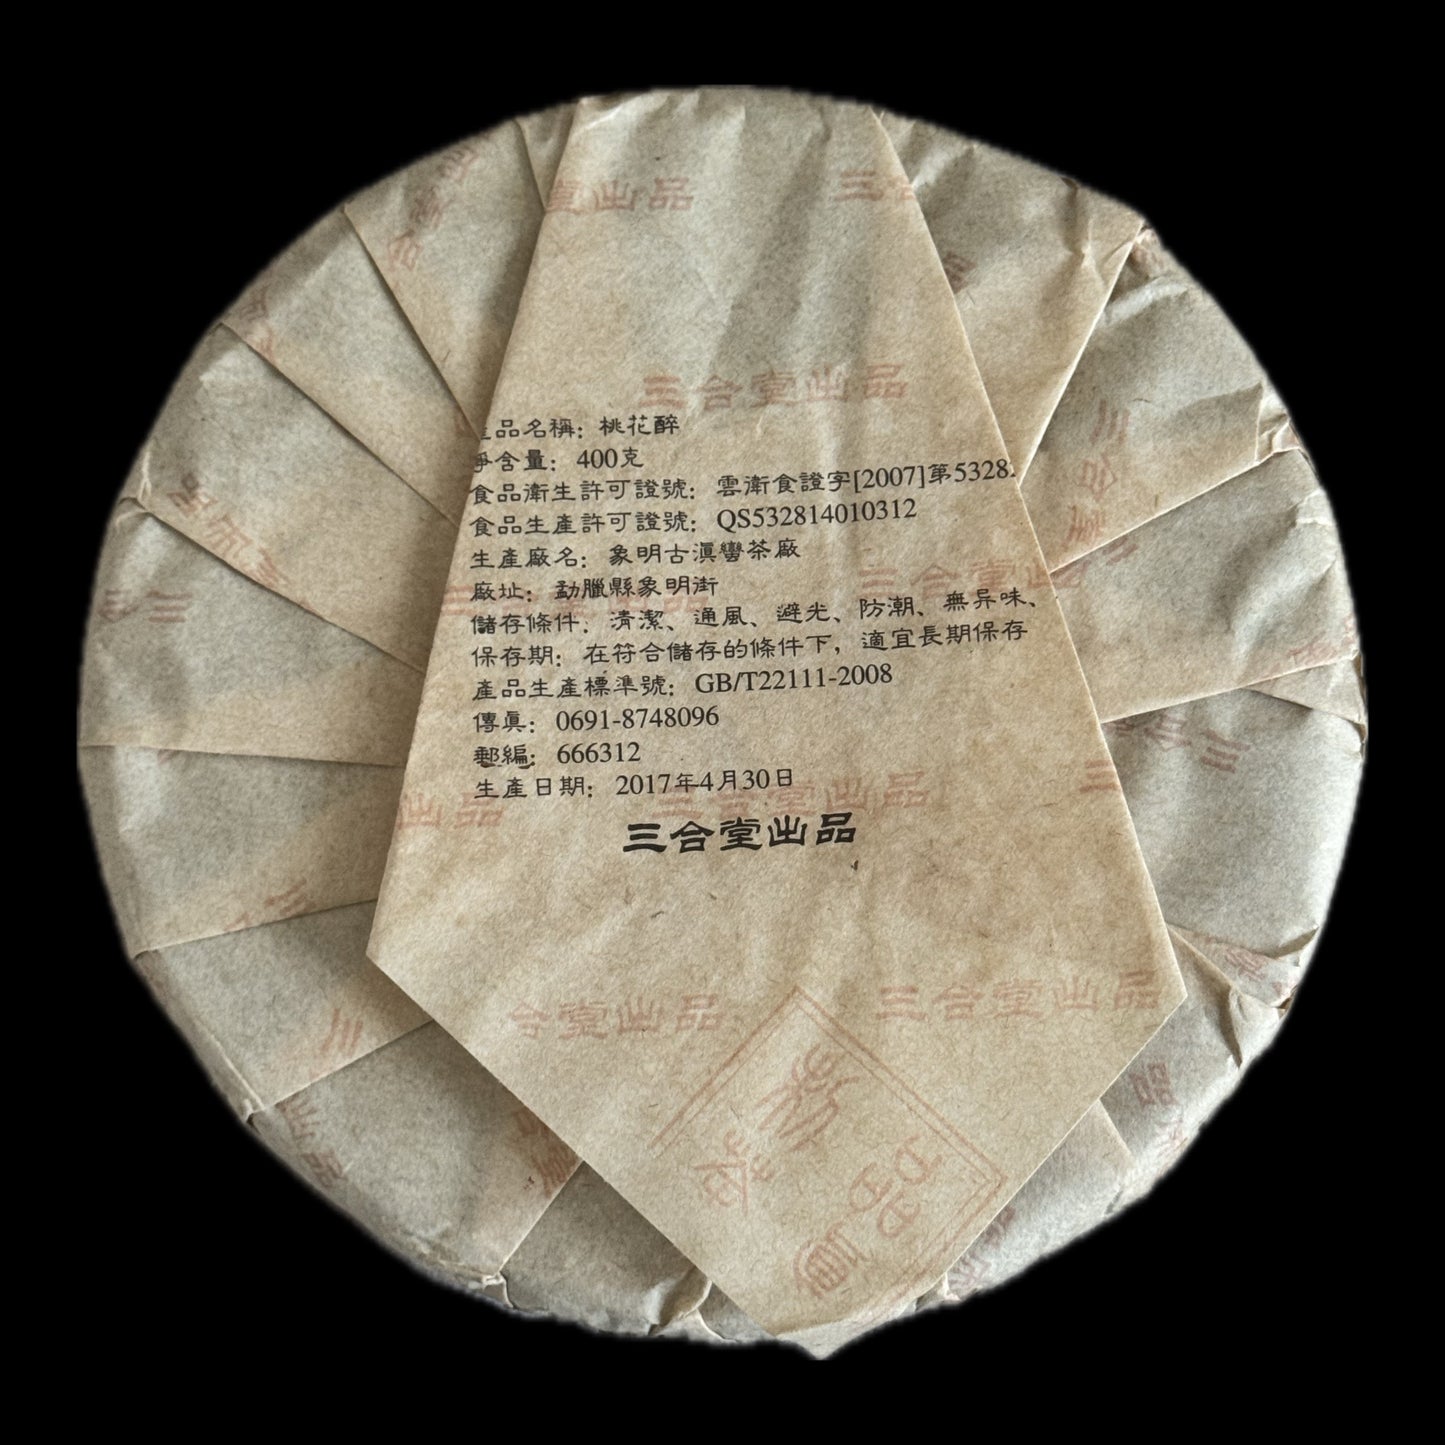 品名稱：桃花醉
淨含量：400克
食品衛生許可證號：雲衛食證字[2007]第5328
食品生產許可證號：QS532814010312
生產廠名：象明古滇巒茶廠
廠址：勐臘縣象明街
儲存條件：清潔、通風、避光、防潮、無异味、
保存期：在符合儲存的條件下，適宜長期保存
產品生產標準號：GB/T22111-2008
傳真：0691-8748096
郵編：666312
生產日期：2017年4月30日
三合堂出品
堂出品
三合堂出品
三合堂出品
三合堂出品
合堂出品
三合堂出品